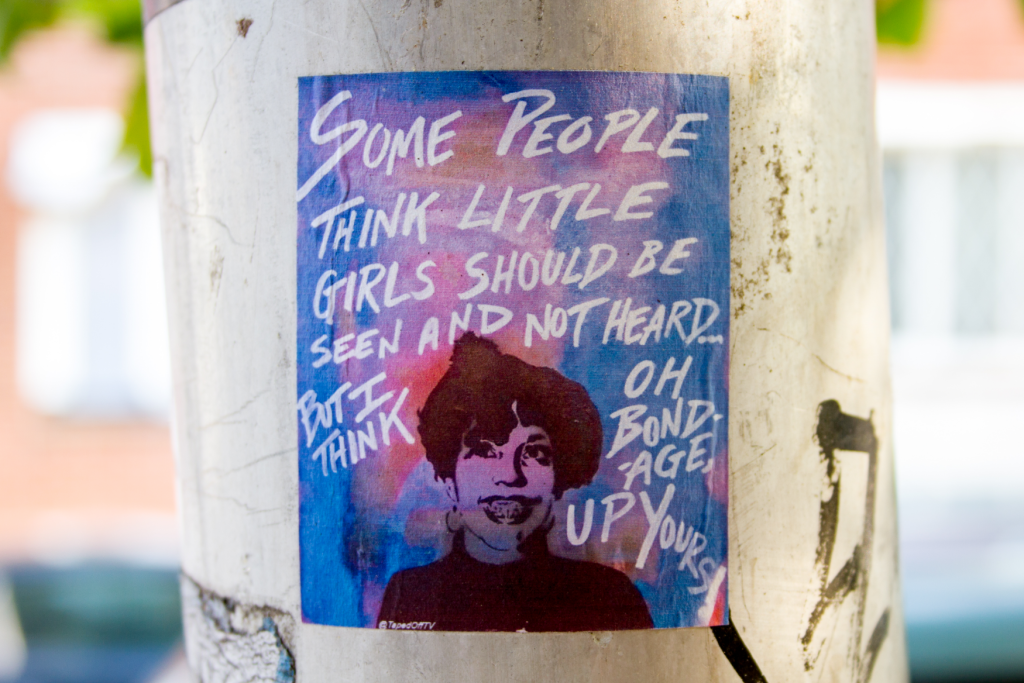 SOME PEOPLE
THINK LITTLE
GIRLS SHOULD BE
SEEN AND NOT HEARD...
BUT I
THINK
OH
BOND-
-AGE,
UP YOURS!
@TapedOffTV